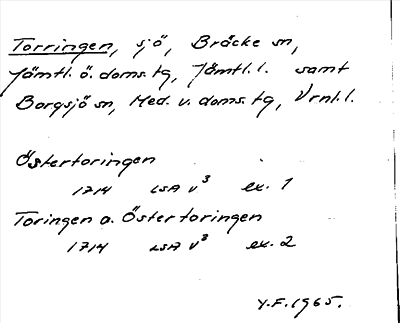 Torringen, sjö, Bräcke sn,
Jämtl. ö. doms. tg, Jämtl. l. samt
Borgsjö sn, Med. v. doms. tg, Vrnl. l.
Östertoringen
1714 LSA V³ ex. 1
Toringen a. Östertoringen
1714 LSA V³ ex. 2
Y.F. 1965.